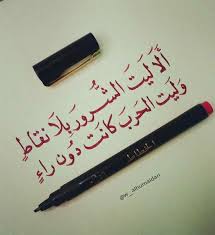 ألا ليت الشُّرور بلا نقاطٍ
وليت الحرب كانت دون راءِ
@w_alhumaidan